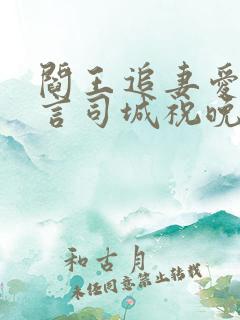 阎王追妻爱
言司城祝晚
和古月
未经同意禁止转载